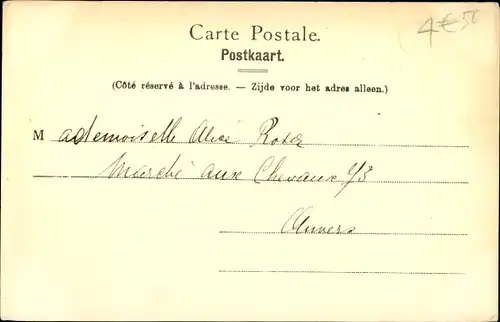 4€50
Carte Postale.
Postkaart.
(Côté réservé à l'adresse. — Zijde voor het adres alleen.)
Mademoiselle Alice
Marché aux Chevaux 73
Anvers